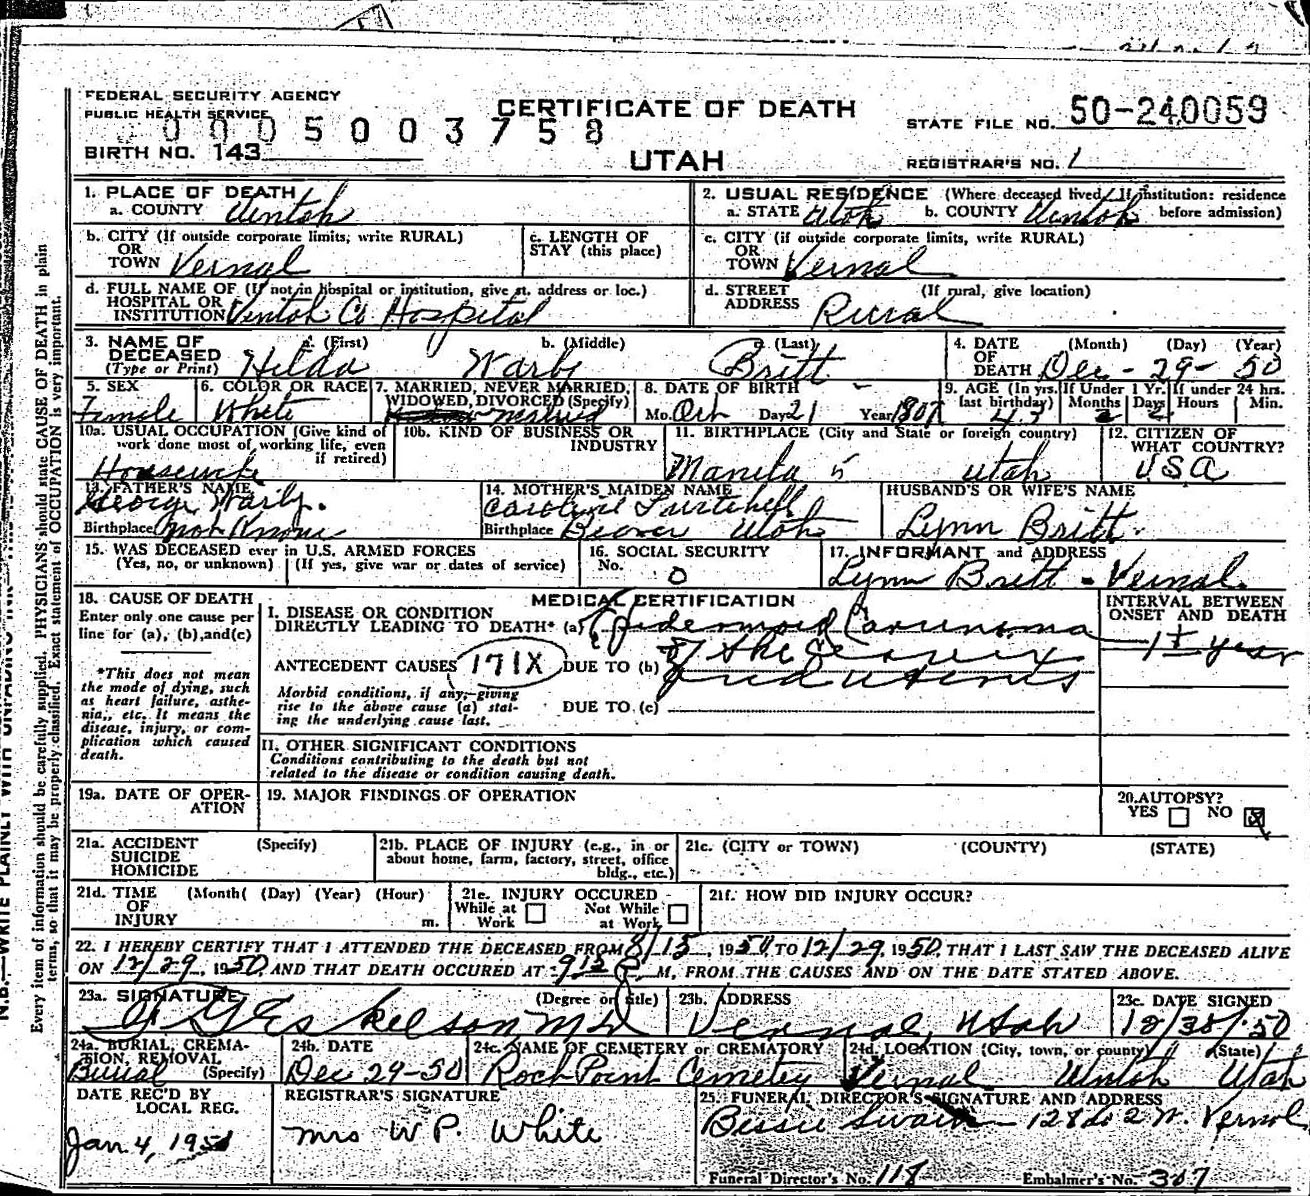 FEDERAL SECURITY AGENCY
PUBLIC HEALTH SERVICE
CERTIFICATE OF DEATH
STATE FILE NO. 50-240059
0005003758
BIRTH NO. 143
UTAH
REGISTRAR'S NO. 1
1. PLACE OF DEATH
a. COUNTY Uintah
2. USUAL RESIDENCE (Where deceased lived. If institution: residence before admission)
a. STATE Utah b. COUNTY Uintah
b. CITY (If outside corporate limits, write RURAL)
OR
TOWN Vernal
c. LENGTH OF
STAY (this place)
c. CITY (if outside corporate limits, write RURAL)
OR
TOWN Vernal
d. FULL NAME OF (If not in hospital or institution, give st. address or loc.)
HOSPITAL OR
INSTITUTION Uintah Co Hospital
d. STREET (If rural, give location)
ADDRESS Rural
3. NAME OF DECEASED
(Type or Print)
a. (First) b. (Middle) c. (Last)
Hilda Warby Britt
4. DATE OF DEATH (Month) (Day) (Year)
Dec - 29 - 50
5. SEX
Female
6. COLOR OR RACE
White
7. MARRIED, NEVER MARRIED,
WIDOWED, DIVORCED (Specify)
Married
8. DATE OF BIRTH
Mo. Oct Day 21 Year 1907
9. AGE (In yrs. last birthday) 43
If Under 1 Yr.
Months 2 Days
If under 24 hrs.
Hours Min.
10a. USUAL OCCUPATION (Give kind of
work done most of working life, even
if retired)
Housewife
10b. KIND OF BUSINESS OR
INDUSTRY
11. BIRTHPLACE (City and State or foreign country)
Manila Utah
12. CITIZEN OF
WHAT COUNTRY?
USA
13. FATHER'S NAME
George Warby.
Birthplace Not Known
14. MOTHER'S MAIDEN NAME
Caroline
Birthplace Beaver Utah
HUSBAND'S OR WIFE'S NAME
Lynn Britt.
15. WAS DECEASED ever in U.S. ARMED FORCES
(Yes, no, or unknown) (If yes, give war or dates of service)
16. SOCIAL SECURITY
No. 0
17. INFORMANT and ADDRESS
Lynn Britt - Vernal.
18. CAUSE OF DEATH
Enter only one cause per
line for (a), (b), and (c)
*This does not mean
the mode of dying, such
as heart failure, asthe-
nia, etc. It means the
disease, injury, or com-
plication which caused
death.
MEDICAL CERTIFICATION
I. DISEASE OR CONDITION
DIRECTLY LEADING TO DEATH* (a) Epidermoid Carcinoma
ANTECEDENT CAUSES 171X DUE TO (b) of the Cervix
and uterus
Morbid conditions, if any, giving
rise to the above cause (a) stat-
ing the underlying cause last.
DUE TO (c)
INTERVAL BETWEEN
ONSET AND DEATH
1± year
II. OTHER SIGNIFICANT CONDITIONS
Conditions contributing to the death but not
related to the disease or condition causing death.
19a. DATE OF OPER-
ATION
19. MAJOR FINDINGS OF OPERATION
20. AUTOPSY?
YES NO X
21a. ACCIDENT (Specify)
SUICIDE
HOMICIDE
21b. PLACE OF INJURY (e.g., in or
about home, farm, factory, street, office
bldg., etc.)
21c. (CITY or TOWN) (COUNTY) (STATE)
21d. TIME (Month( (Day) (Year) (Hour)
OF
INJURY m.
21e. INJURY OCCURED
While at Work Not While at Work
21f. HOW DID INJURY OCCUR?
22. I HEREBY CERTIFY THAT I ATTENDED THE DECEASED FROM 8/15, 1950, TO 12/29, 1950, THAT I LAST SAW THE DECEASED ALIVE
ON 12/29, 1950, AND THAT DEATH OCCURED AT 915 P M, FROM THE CAUSES AND ON THE DATE STATED ABOVE.
23a. SIGNATURE (Degree or title)
G Eskelson MD
23b. ADDRESS
Vernal, Utah
23c. DATE SIGNED
12/30/50
24a. BURIAL, CREMA-
TION, REMOVAL
(Specify)
Burial
24b. DATE
Dec 29-50
24c. NAME OF CEMETERY or CREMATORY
Rock Point Cemetery
24d. LOCATION (City, town, or county) (State)
Vernal Uintah Utah
DATE REC'D BY
LOCAL REG.
Jan 4, 1951
REGISTRAR'S SIGNATURE
Mrs W P. White
25. FUNERAL DIRECTOR'S SIGNATURE AND ADDRESS
Bessie Swain - 128 So 2 W. Vernal
Funeral Director's No. 118 Embalmer's No. 307
N.B.—WRITE PLAINLY WITH UNFADING INK
Every item of information should be carefully supplied. PHYSICIANS should state CAUSE OF DEATH in plain
terms, so that it may be properly classified. Exact statement of OCCUPATION is very important.